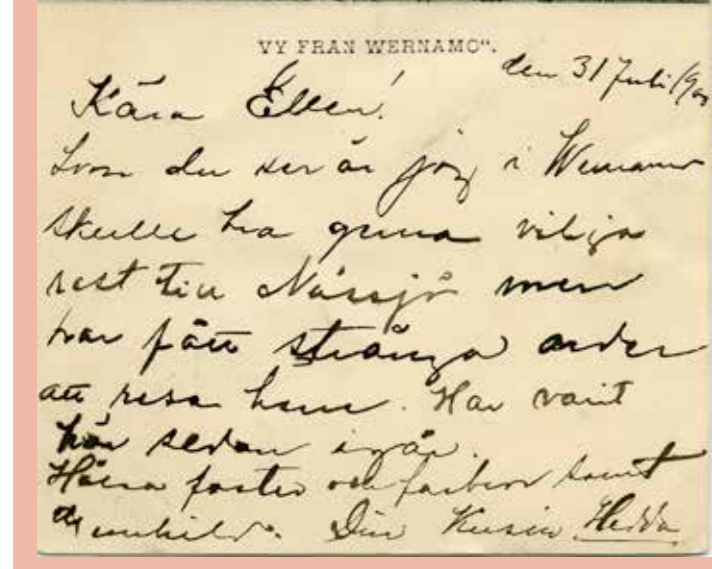 VY FRÅN WERNAMO".
den 31 Juli 1900
Kära Ellen!
Som du ser är jag i Wernamo
skulle ha gerna vilja
rest till Nässjö men
har fått stränga order
att resa hem. Har varit
här sedan igår.
Hälsa faster och farbror samt
Gunhild. Din Kusin Hedda